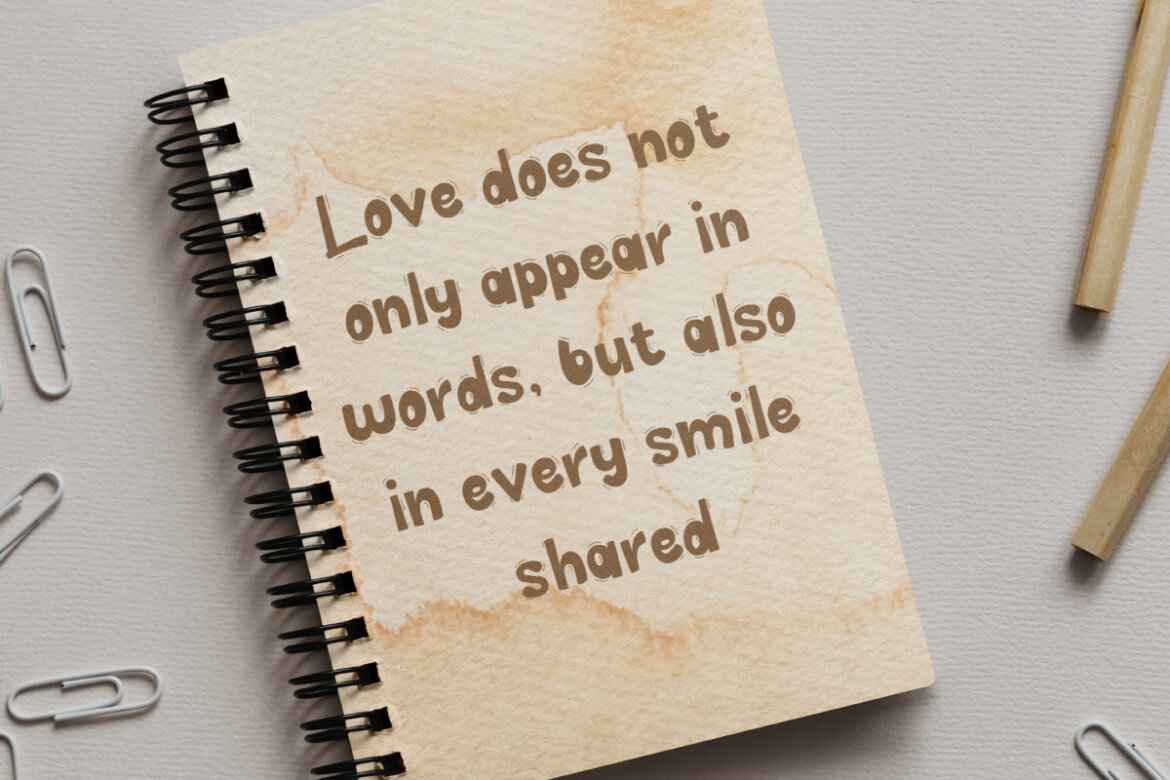 Love does not
only appear in
words, but also
in every smile
shared